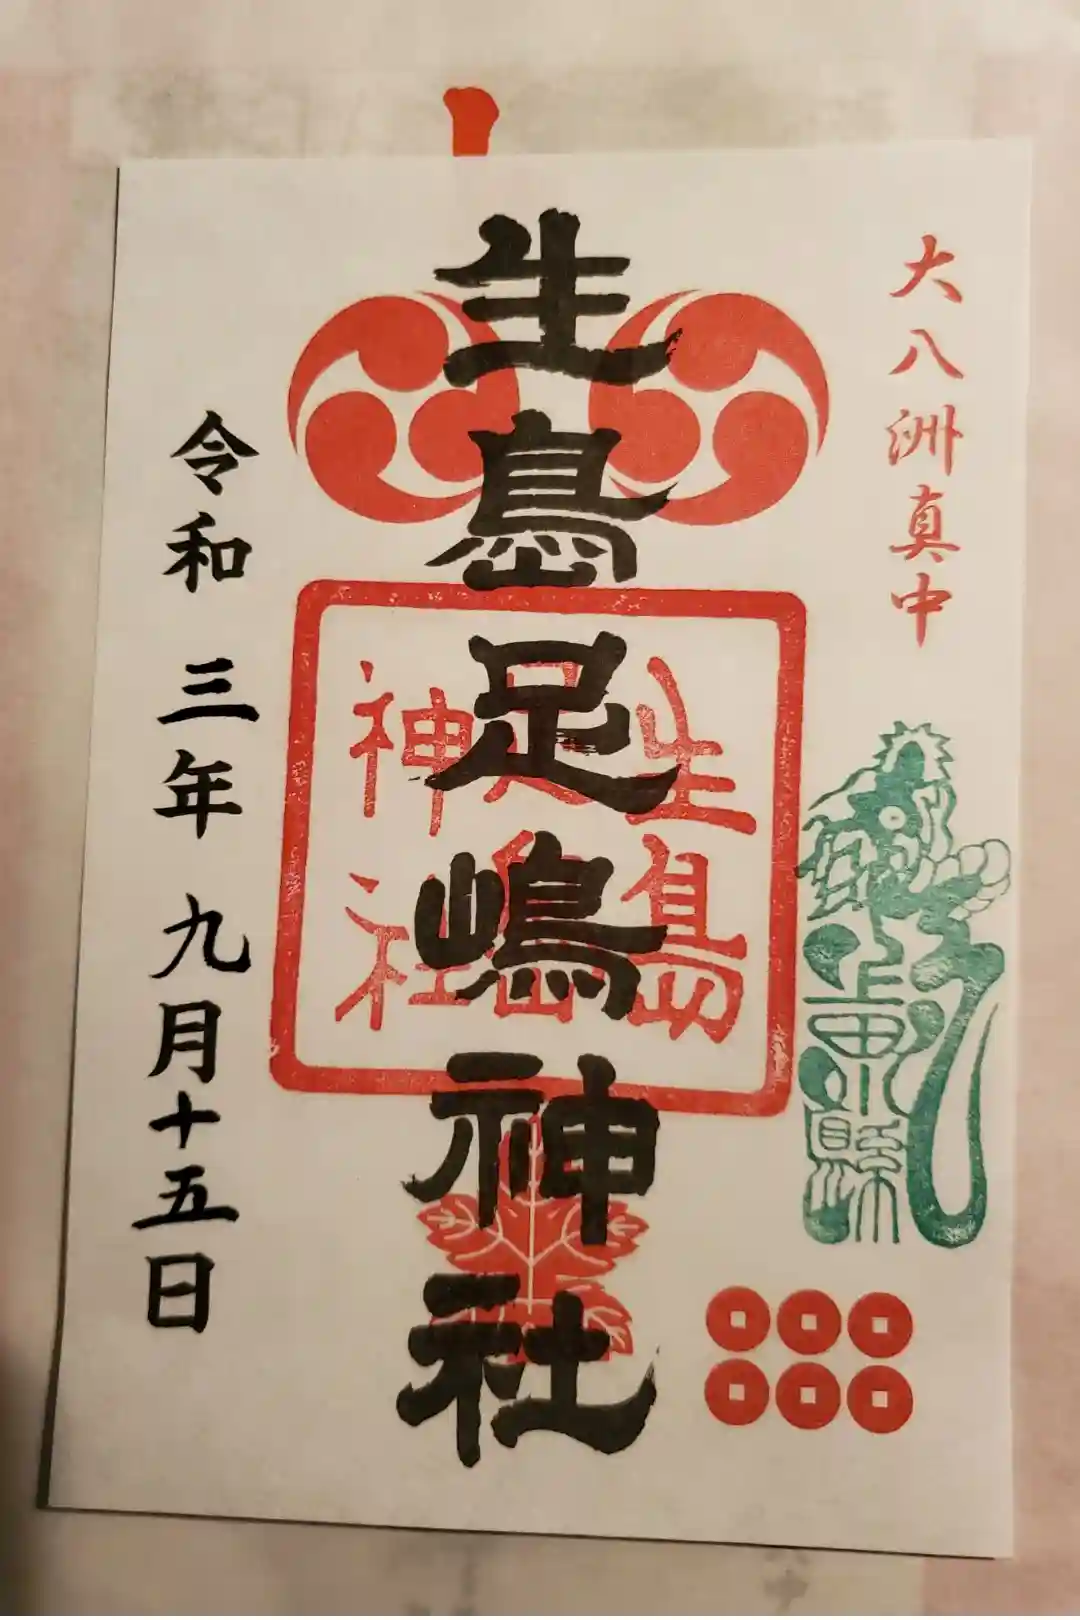 大八洲真中
生島足嶋神社
生島
足島
神社
令和 三年 九月十五日